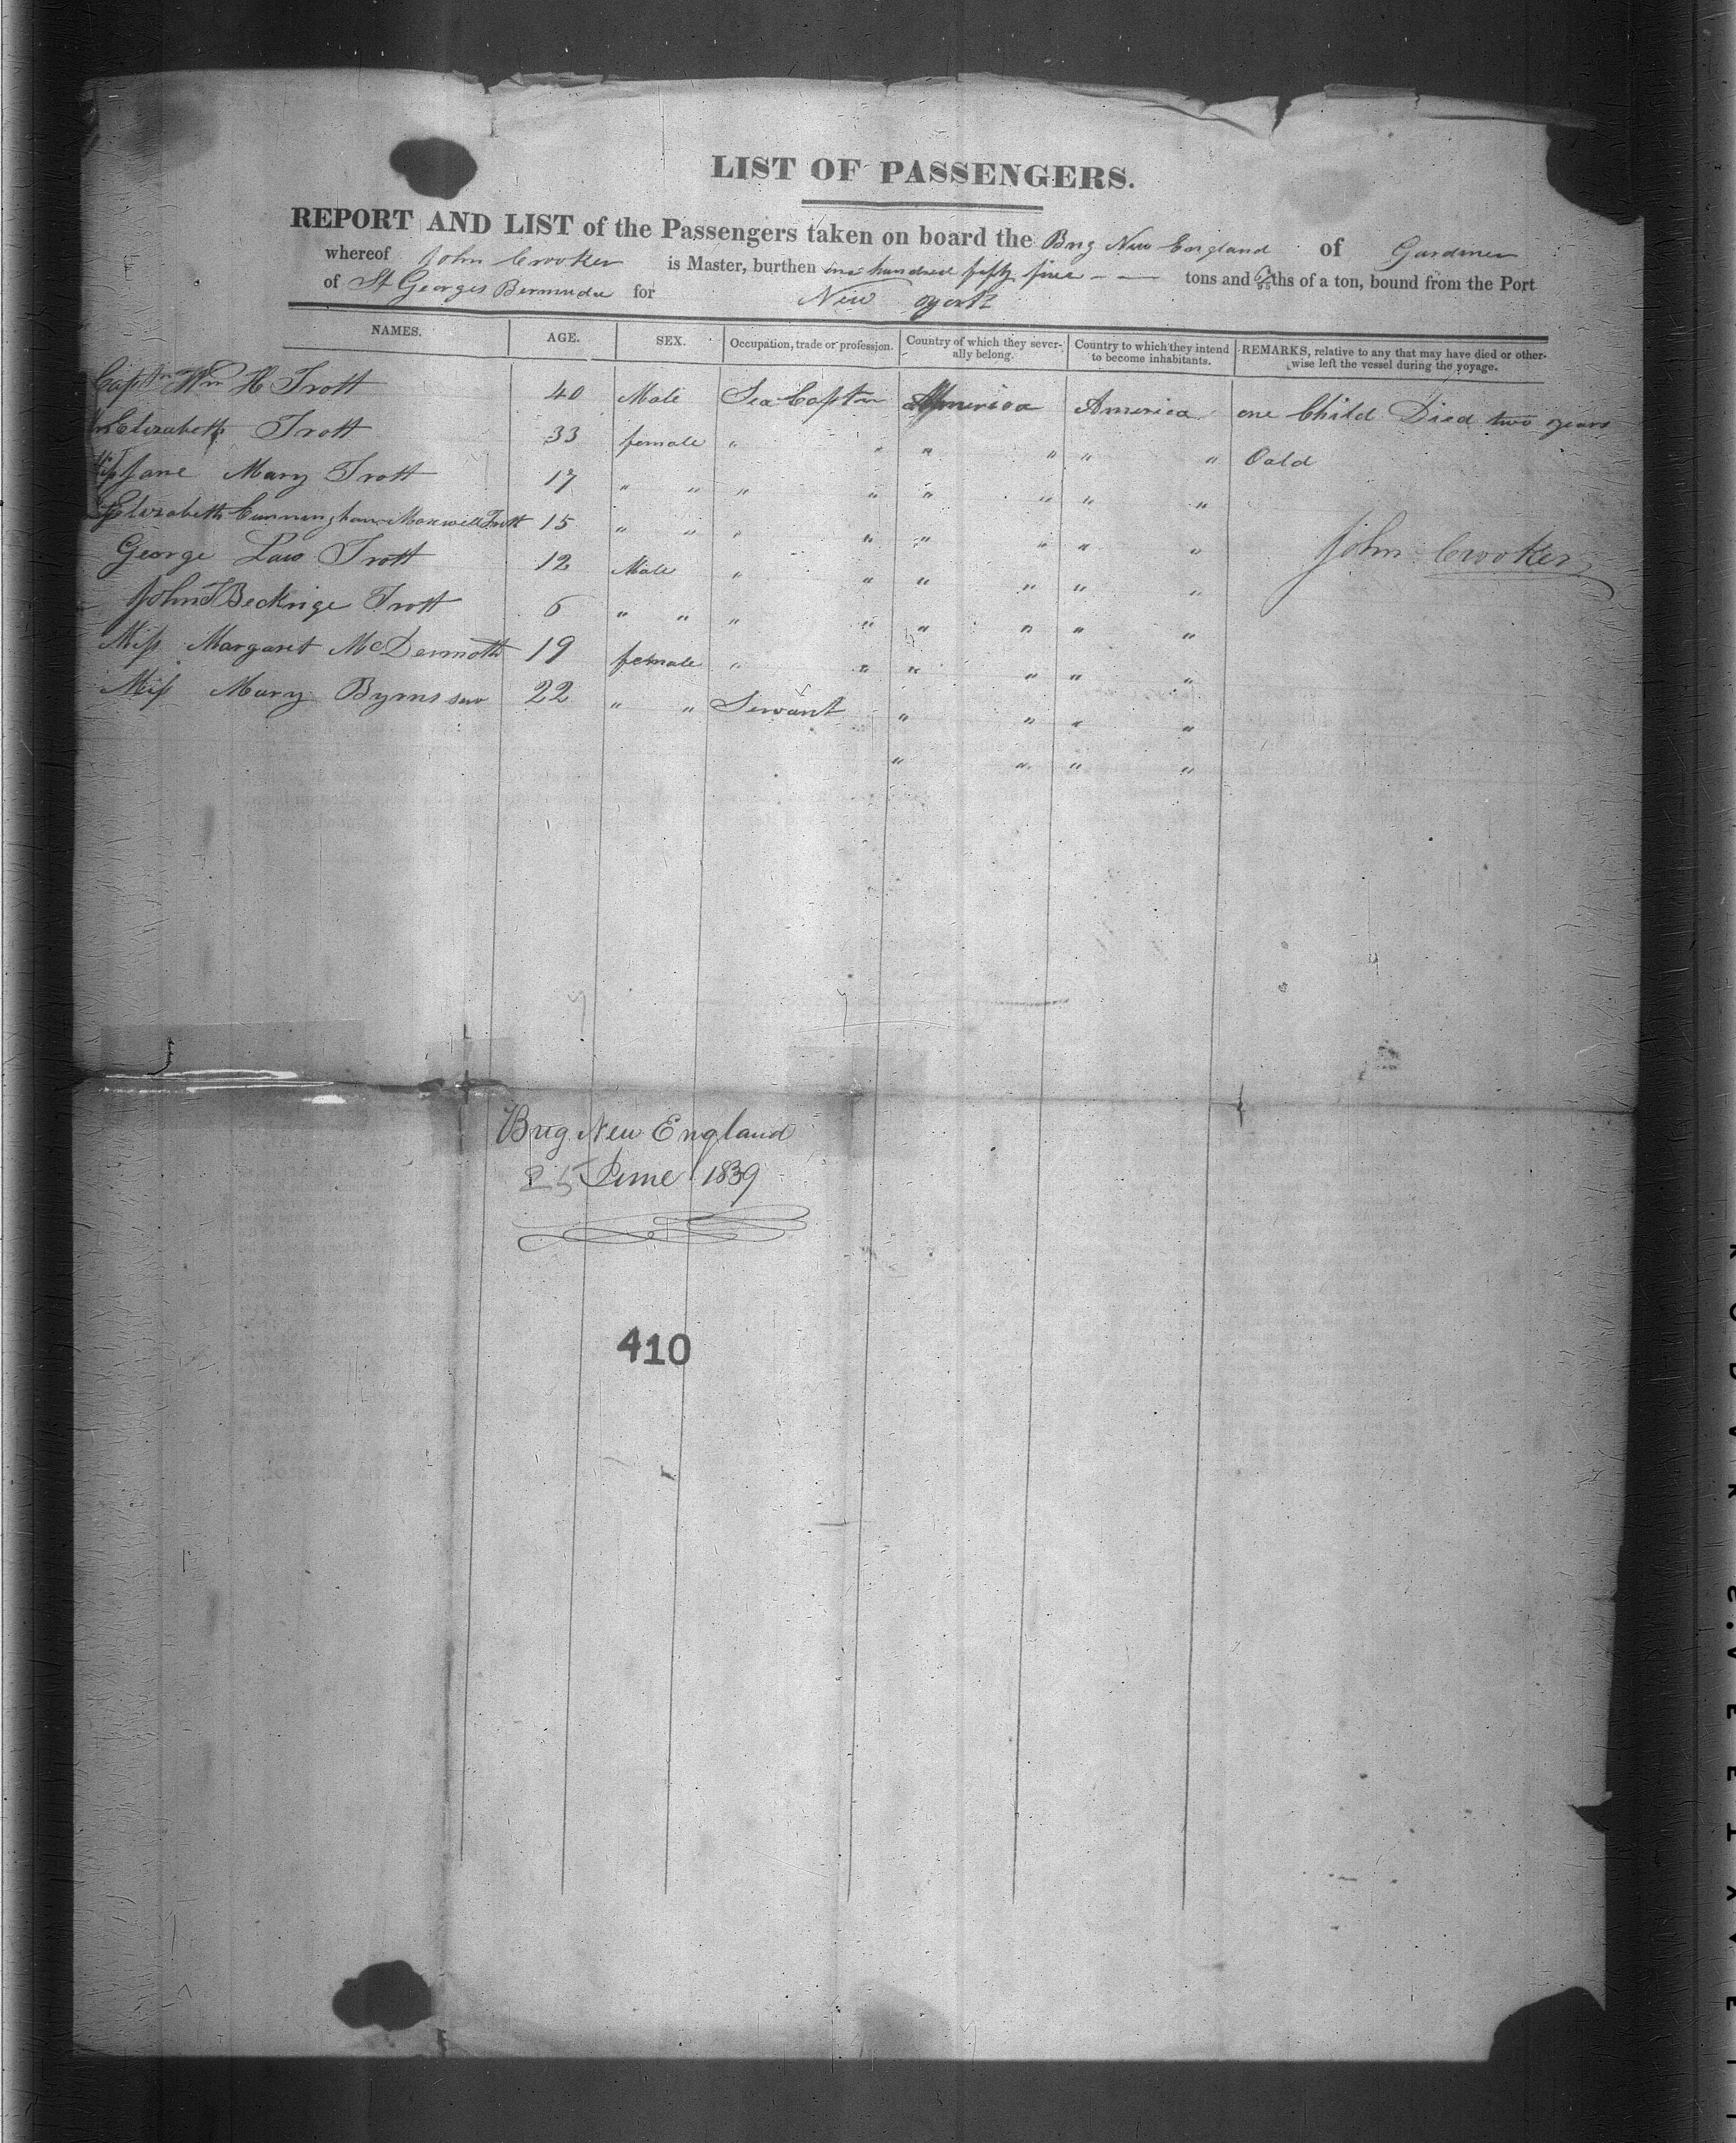 LIST OF PASSENGERS.
REPORT AND LIST of the Passengers taken on board the Brig New England of Gardiner
whereof John Crooker is Master, burthen one hundred fifty five tons and /95ths of a ton, bound from the Port
of St Georges Bermuda for New york
NAMES. AGE. SEX. Occupation, trade or profession. Country of which they severally belong. Country to which they intend to become inhabitants. REMARKS, relative to any that may have died or otherwise left the vessel during the voyage.
Captn Wm H Trott 40 Male Sea Captn America America one Child Died two years
Elizabeth Trott 33 female " " " " " " Oald
Miss Jane Mary Trott 17 " " " " " " " "
Elizabeth Cunningham Maxwell Trott 15 " " " " " " " "
George Law Trott 12 Male " " " " " "
John Beckrige Trott 6 " " " " " " " "
Miss Margaret McDermoth 19 female " " " " " "
Miss Mary Byrns 22 " " Servant " " " "
" " " "
John Crooker
Brig New England
25 June 1839
410